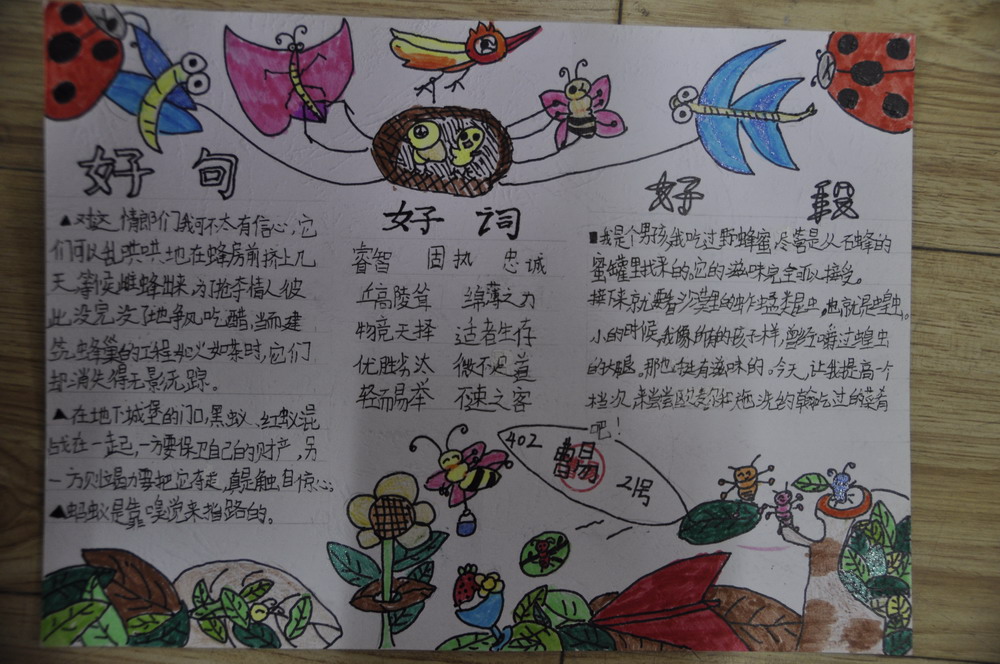 好句
▲对这情郎们我可不太有信心,它
们可以乱哄哄地在蜂房前挤上几
天,等候雌蜂出来,为了抢夺情人彼
此没完没了地争风吃醋,当而建
筑蜂巢的工程如火如荼时,它们
却消失得无影无踪。
▲在地下城堡的门口,黑蚁、红蚁混
战在一起,一方要保卫自己的财产,另
一方则竭力要把它夺走,真是触目惊心。
▲蚂蚁是靠嗅觉来指路的。
好词
睿智 固执 忠诚
丘高陵耸 绵薄之力
物竞天择 适者生存
优胜劣汰 微不足道
轻而易举 不速之客
好段
■我是个男孩,我吃过野蜂蜜,尽管是从石蜂的
蜜罐里找来的,它的滋味完全可以接受。
接下来就要看沙漠里的蚱蜢类昆虫,也就是蝗虫。
小的时候,我像所有的孩子一样,曾经嚼过蝗虫
的大腿。那也挺有滋味的。今天,让我提高一个
档次,来尝尝 约翰吃过的菜肴
吧!
402
曹易
21号